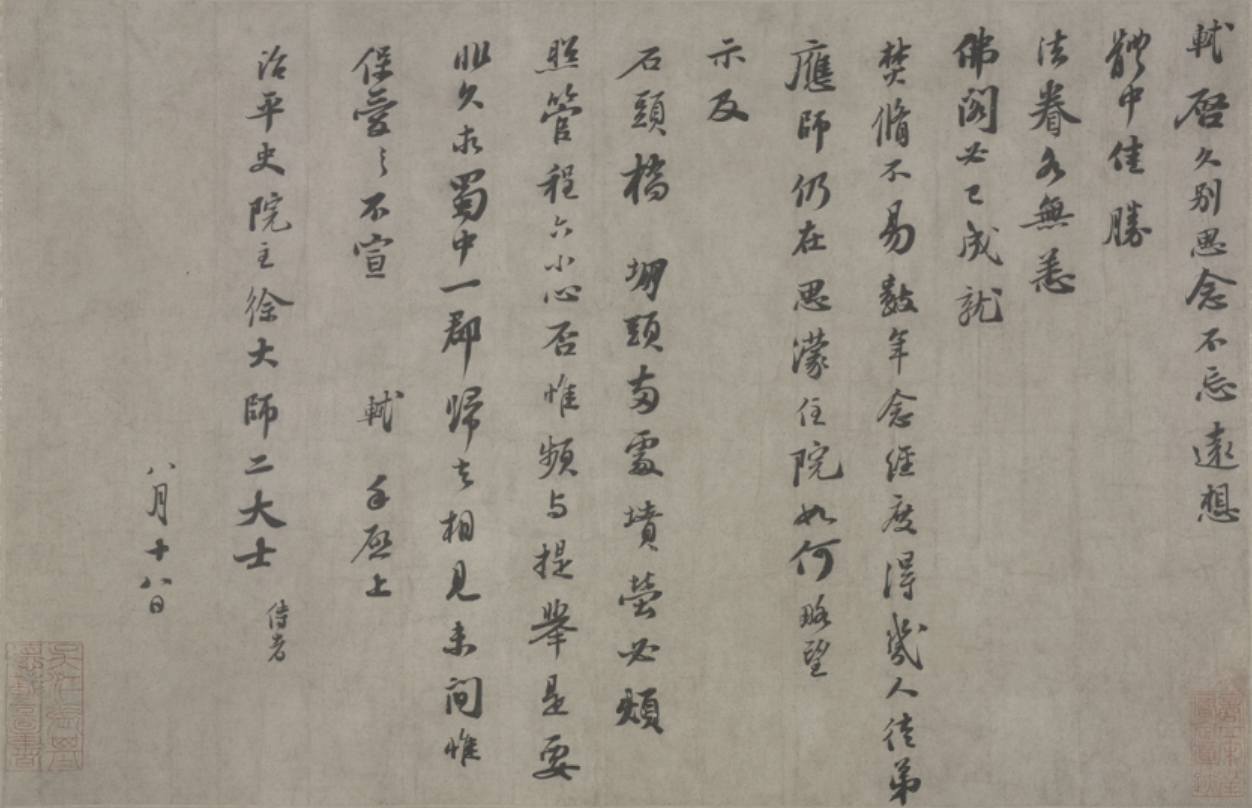 軾啓久別思念不忘遠想
體中佳勝
法眷各無恙
佛閣必已成就
焚脩不易數年念經度得幾人徒弟
應師仍在思濛住院如何略望
示及
石頭橋堋頭兩處墳塋必煩
照管程六小心否惟頻与提舉是要
非久求蜀中一郡歸去相見未間惟
保愛之不宣軾手啓上
治平史院主徐大師二大士
侍者
八月十八日